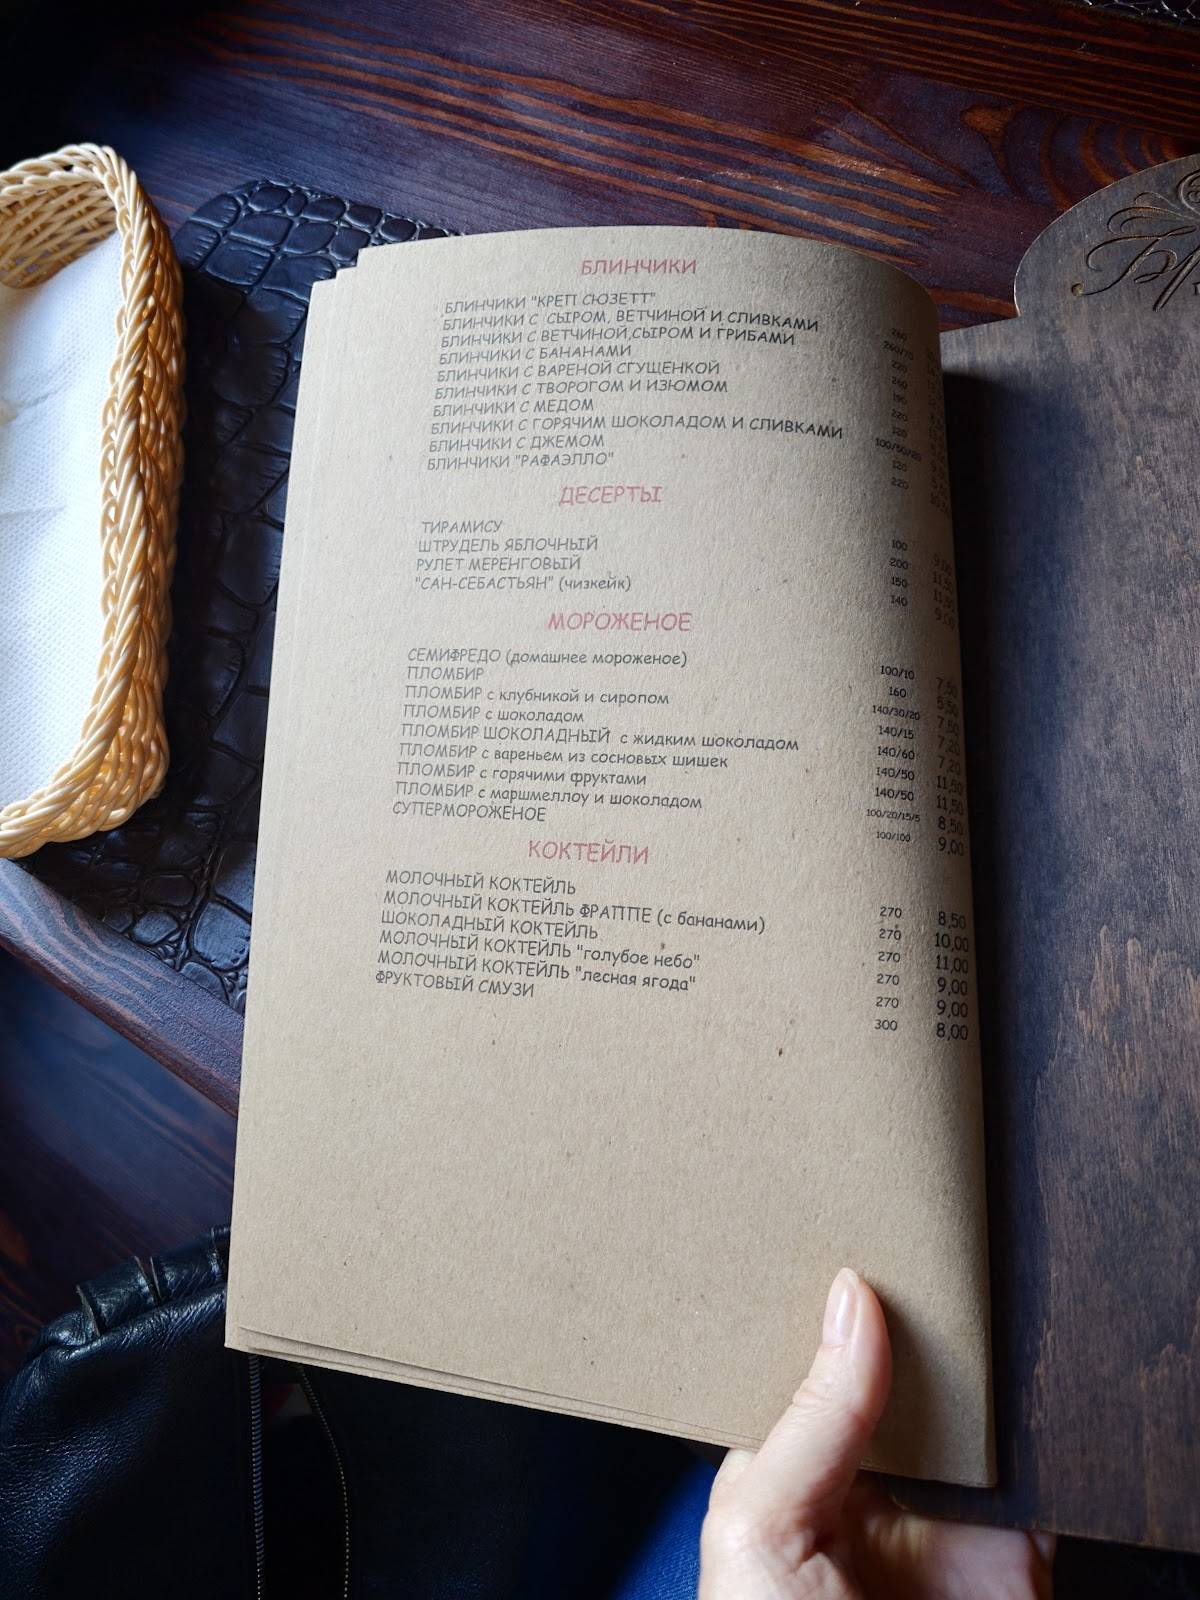 БЛИНЧИКИ
БЛИНЧИКИ "КРЕП СЮЗЕТТ" 260
БЛИНЧИКИ С СЫРОМ, ВЕТЧИНОЙ И СЛИВКАМИ 260/70
БЛИНЧИКИ С ВЕТЧИНОЙ,СЫРОМ И ГРИБАМИ 220
БЛИНЧИКИ С БАНАНАМИ 260
БЛИНЧИКИ С ВАРЕНОЙ СГУЩЕНКОЙ 190
БЛИНЧИКИ С ТВОРОГОМ И ИЗЮМОМ 220
БЛИНЧИКИ С МЕДОМ 120
БЛИНЧИКИ С ГОРЯЧИМ ШОКОЛАДОМ И СЛИВКАМИ 100/50/20
БЛИНЧИКИ С ДЖЕМОМ 120
БЛИНЧИКИ "РАФАЭЛЛО" 220
ДЕСЕРТЫ
ТИРАМИСУ 100 9,00
ШТРУДЕЛЬ ЯБЛОЧНЫЙ 200 11,50
РУЛЕТ МЕРЕНГОВЫЙ 150 11,50
"САН-СЕБАСТЬЯН" (чизкейк) 140 9,00
МОРОЖЕНОЕ
СЕМИФРЕДО (домашнее мороженое) 100/10 7,50
ПЛОМБИР 160 5,50
ПЛОМБИР с клубникой и сиропом 140/30/20 7,50
ПЛОМБИР с шоколадом 140/15 7,20
ПЛОМБИР ШОКОЛАДНЫЙ с жидким шоколадом 140/60 7,20
ПЛОМБИР с вареньем из сосновых шишек 140/50 11,50
ПЛОМБИР с горячими фруктами 140/50 11,50
ПЛОМБИР с маршмеллоу и шоколадом 100/20/15/5 8,50
СУПЕРМОРОЖЕНОЕ 100/100 9,00
КОКТЕЙЛИ
МОЛОЧНЫЙ КОКТЕЙЛЬ 270 8,50
МОЛОЧНЫЙ КОКТЕЙЛЬ ФРАППЕ (с бананами) 270 10,00
ШОКОЛАДНЫЙ КОКТЕЙЛЬ 270 11,00
МОЛОЧНЫЙ КОКТЕЙЛЬ "голубое небо" 270 9,00
МОЛОЧНЫЙ КОКТЕЙЛЬ "лесная ягода" 270 9,00
ФРУКТОВЫЙ СМУЗИ 300 8,00